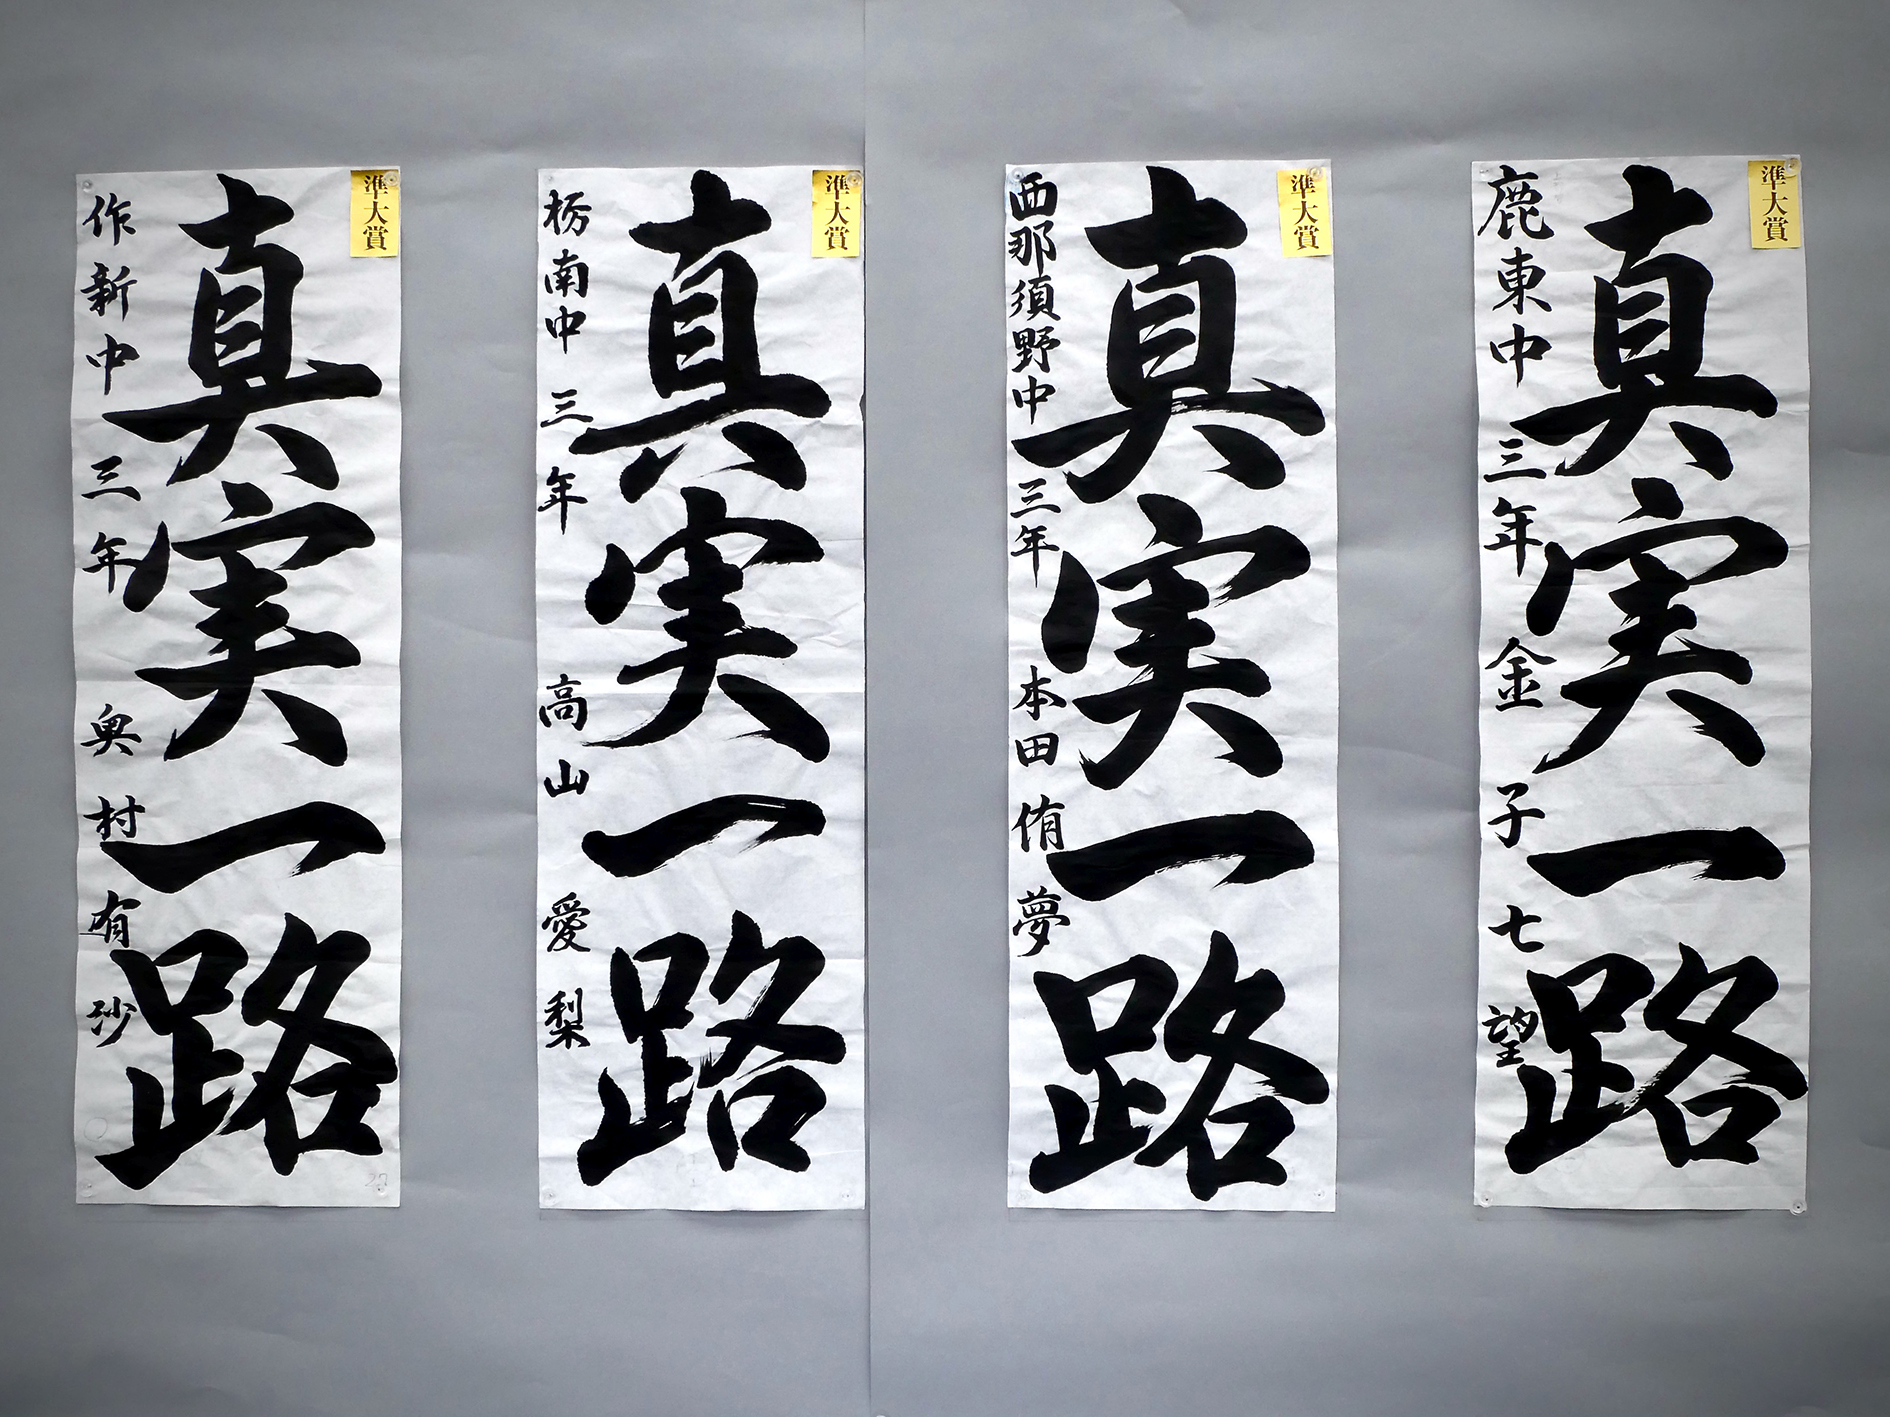 準大賞
真実一路
鹿東中 三年 金子七望
準大賞
真実一路
西那須野中 三年 本田侑夢
準大賞
真実一路
栃南中 三年 高山愛梨
準大賞
真実一路
作新中 三年 奥村有沙